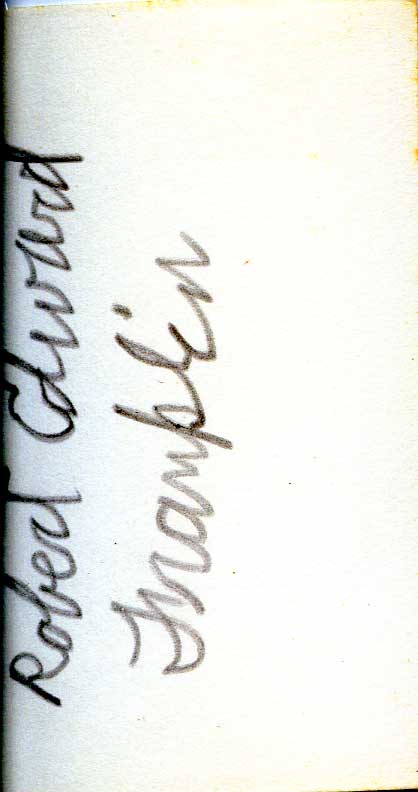 Robert Edward
Framplin